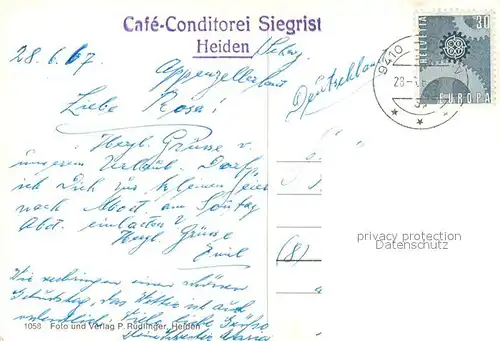 Café-Conditorei Siegrist
Heiden
Schweiz
28.6.67
Appenzellerland
Deutschland
Liebe Rosa!
Herzl. Grüsse v.
unserem Urlaub. Darf
ich Dich zur kleinen Feier
nach am Sonntag
Abd. einladen
Herzl. Grüsse
Emil
Wir verbringen einen schönen
Geburtstag, das Wetter ist auch
viele liebe Grüsse
1058 Foto und Verlag P. Rüdlinger, Heiden
(8)
9410
HELVETIA
30
EUROPA
privacy protection
Datenschutz